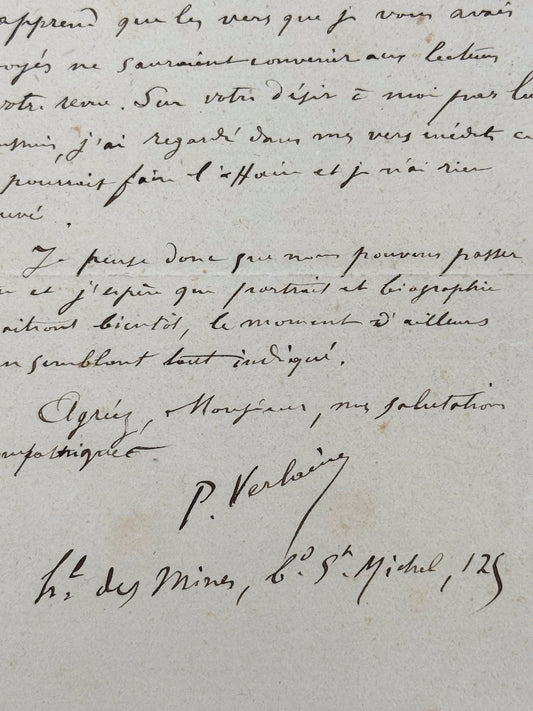 apprend que les vers que je vous avais
oyés ne sauraient convenir aux lecteurs
votre revue. Sur votre désir à moi par lu
j'ai regardé dans mes vers inédits ce
pourrait faire l'affaire et je n'ai rien
uvé.
Je pense donc que nous pouvons passer
et j'espère que portrait et biographie
aîtront bientôt, le moment d'ailleurs
en semblant tout indiqué.
Agréez, Monsieur, mes salutations
mpathiques
P. Verlaine
hl. des Mines, bd. St. Michel, 125